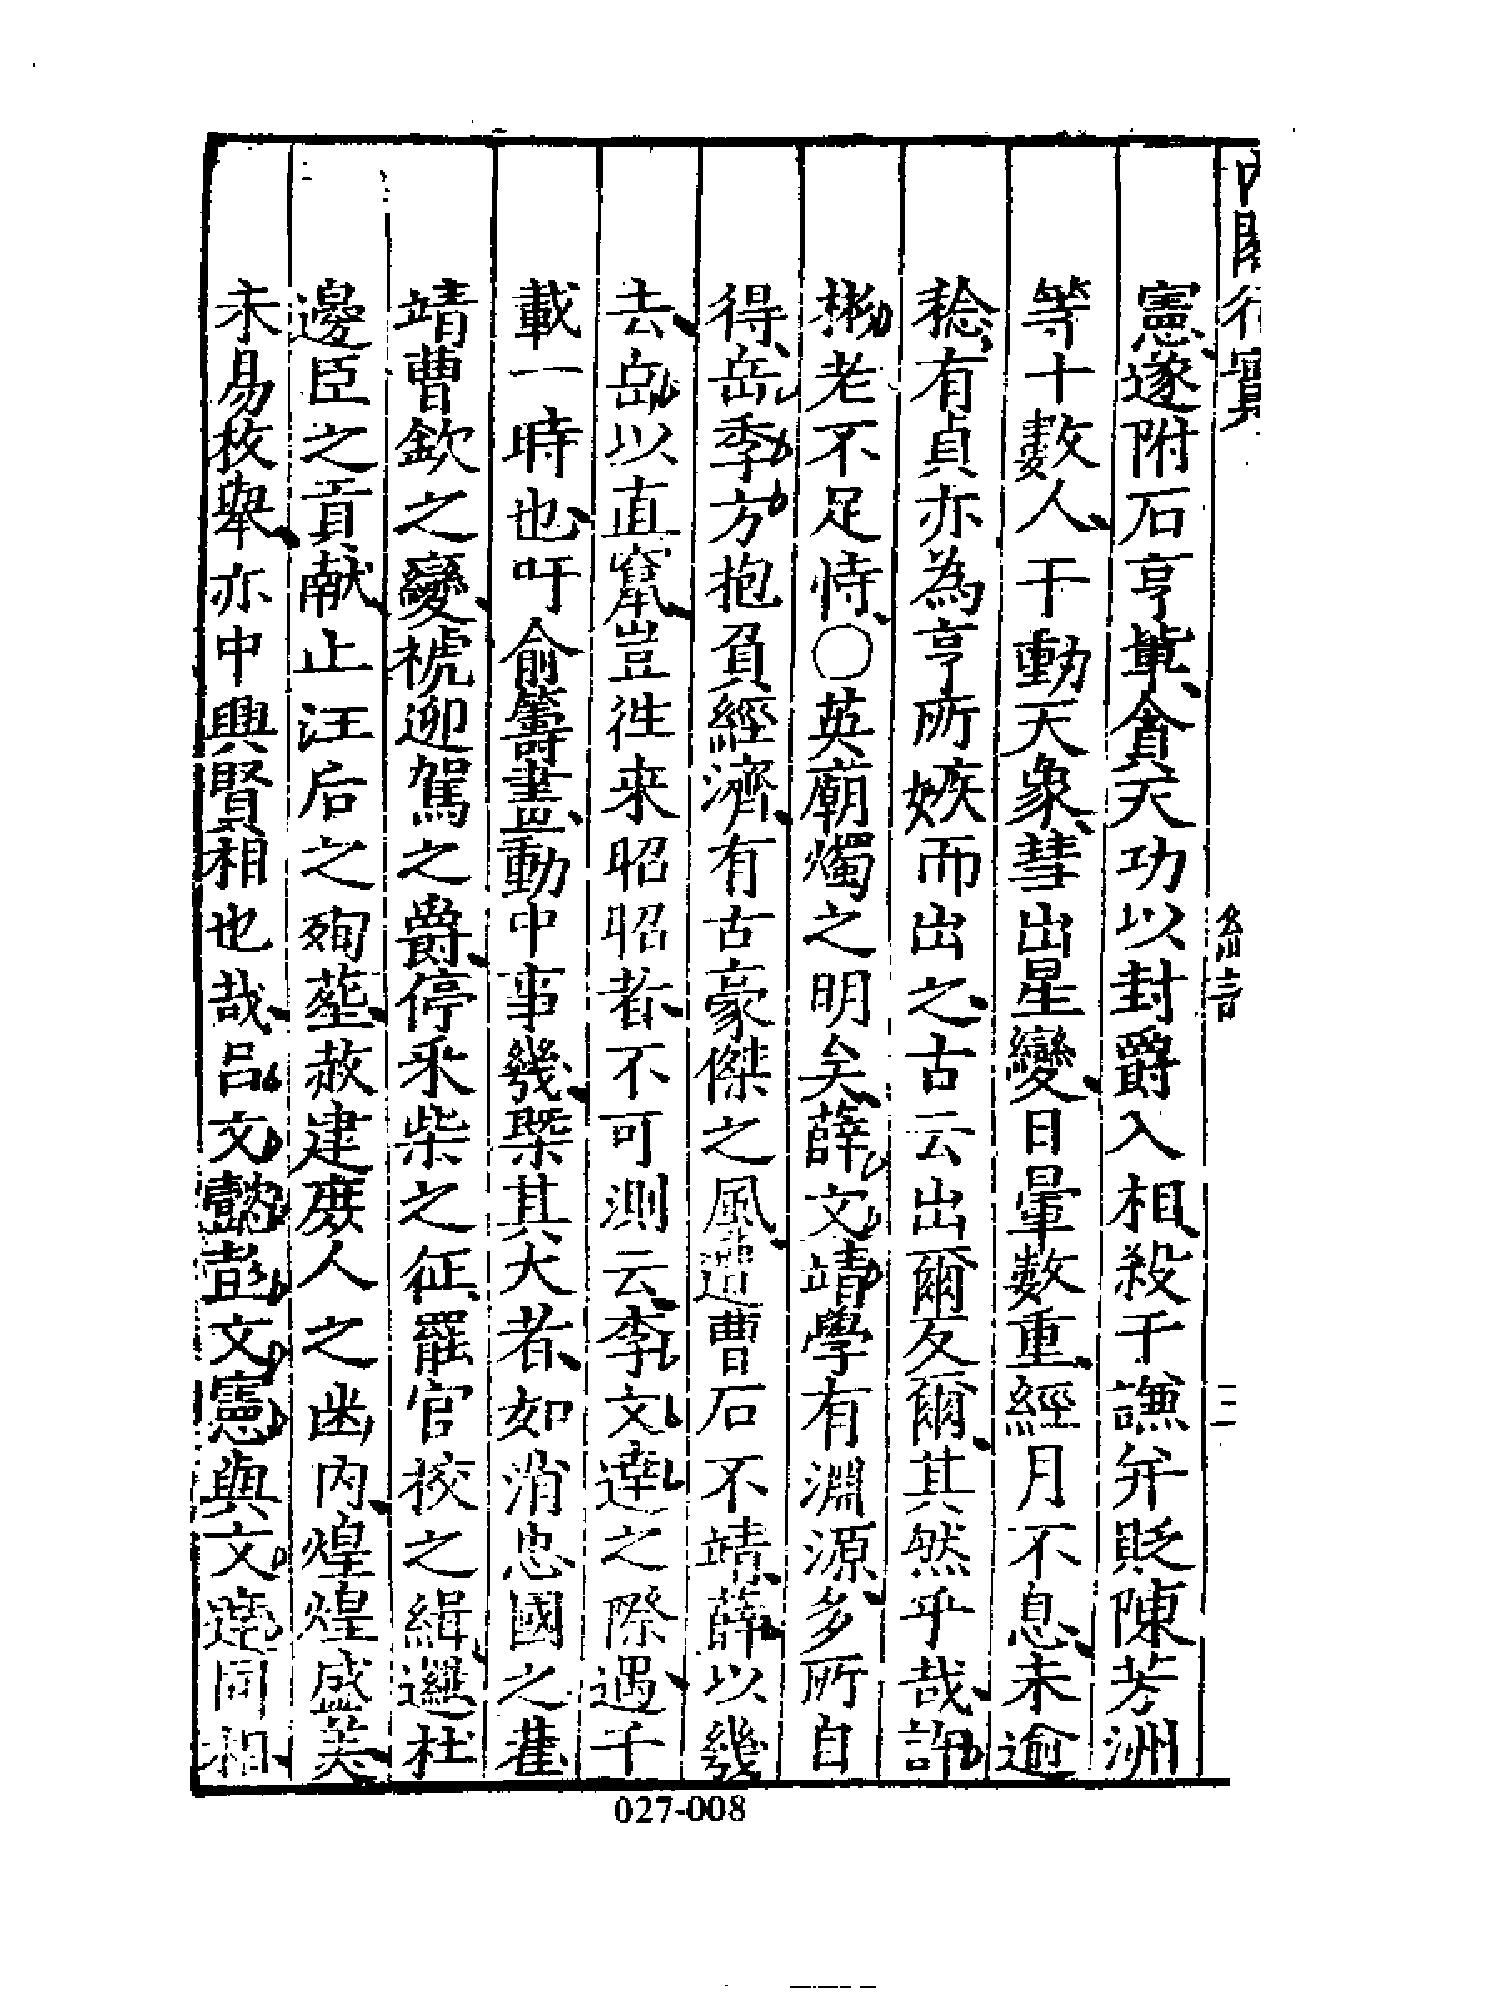 內閣行實
總言
三
憲遂附石亨輩貪天功以封爵入相殺于謙并貶陳芳洲
等十數人干動天象彗出星變日暈數重經月不息未逾
稔有貞亦為亨所嫉而出之古云出爾反爾其然乎哉許
彬老不足恃○英廟燭之明矣薛文靖學有淵源多所自
得岳季方抱負經濟有古豪傑之風遭曹石不靖薛以幾
去岳以直竄豈徃来昭昭者不可測云李文達之際遇千
載一時也吁俞籌畫動中事幾槩其大者如消忠國之萑
靖曹欽之變褫迎駕之爵停采柴之征罷官挍之緝邏杜
邊臣之貢献止汪后之殉葬赦建庻人之凾內煌煌盛美
未易枚舉亦中興賢相也哉吕文懿彭文憲與文達同相
027-008